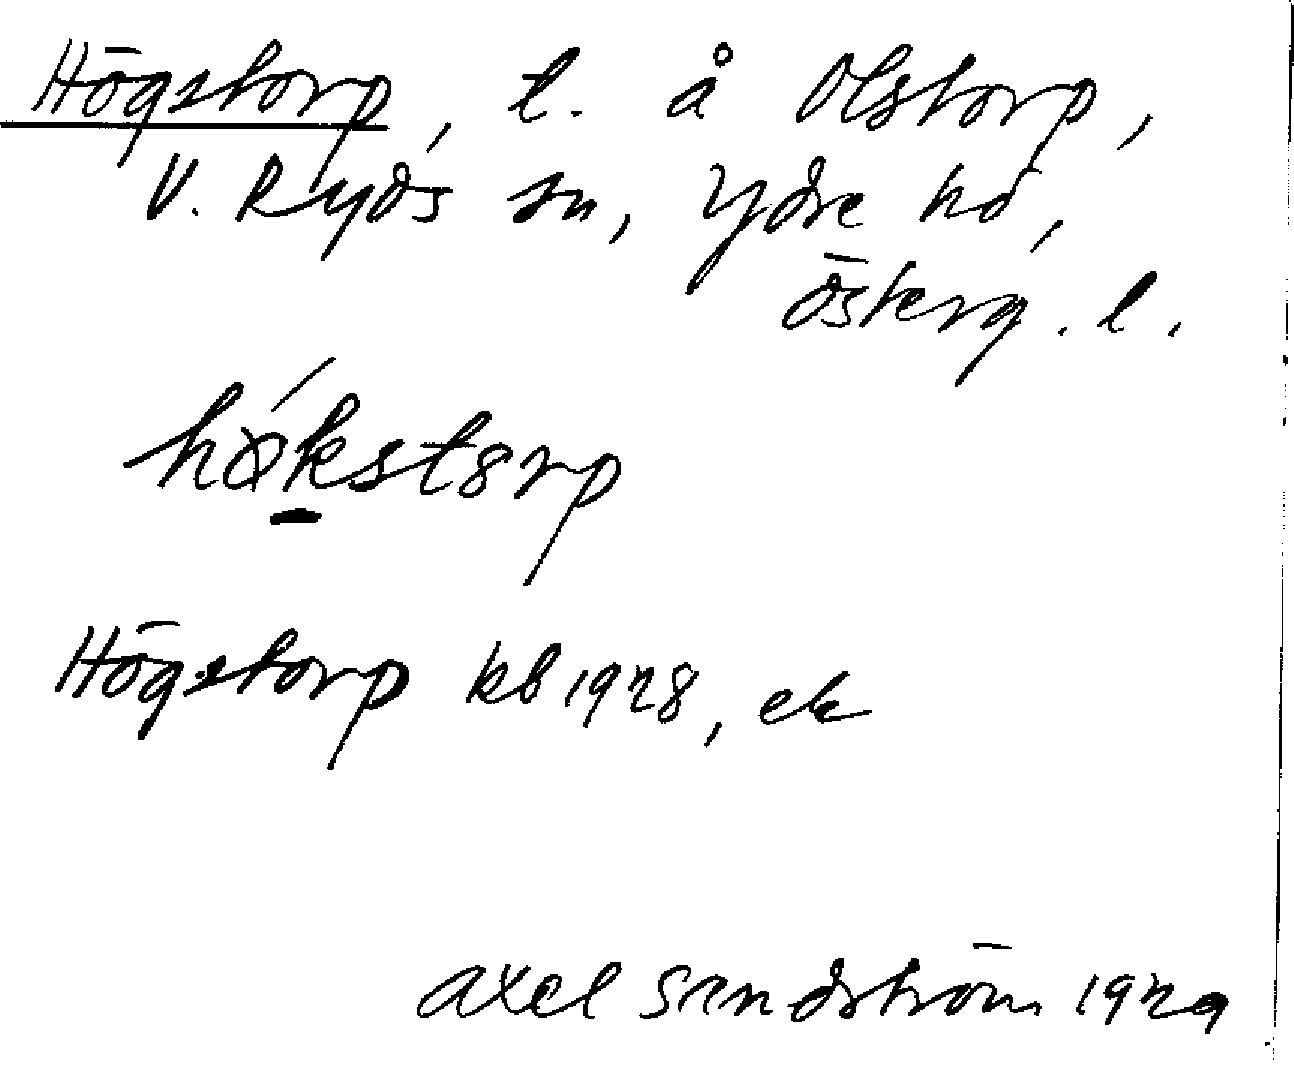 Högstorp, t. å Olstorp,
V. Ryds sn, Ydre hd,
Österg. l.
hǿkstorp
Högstorp kb 1928, ek
Axel Sandström 1929